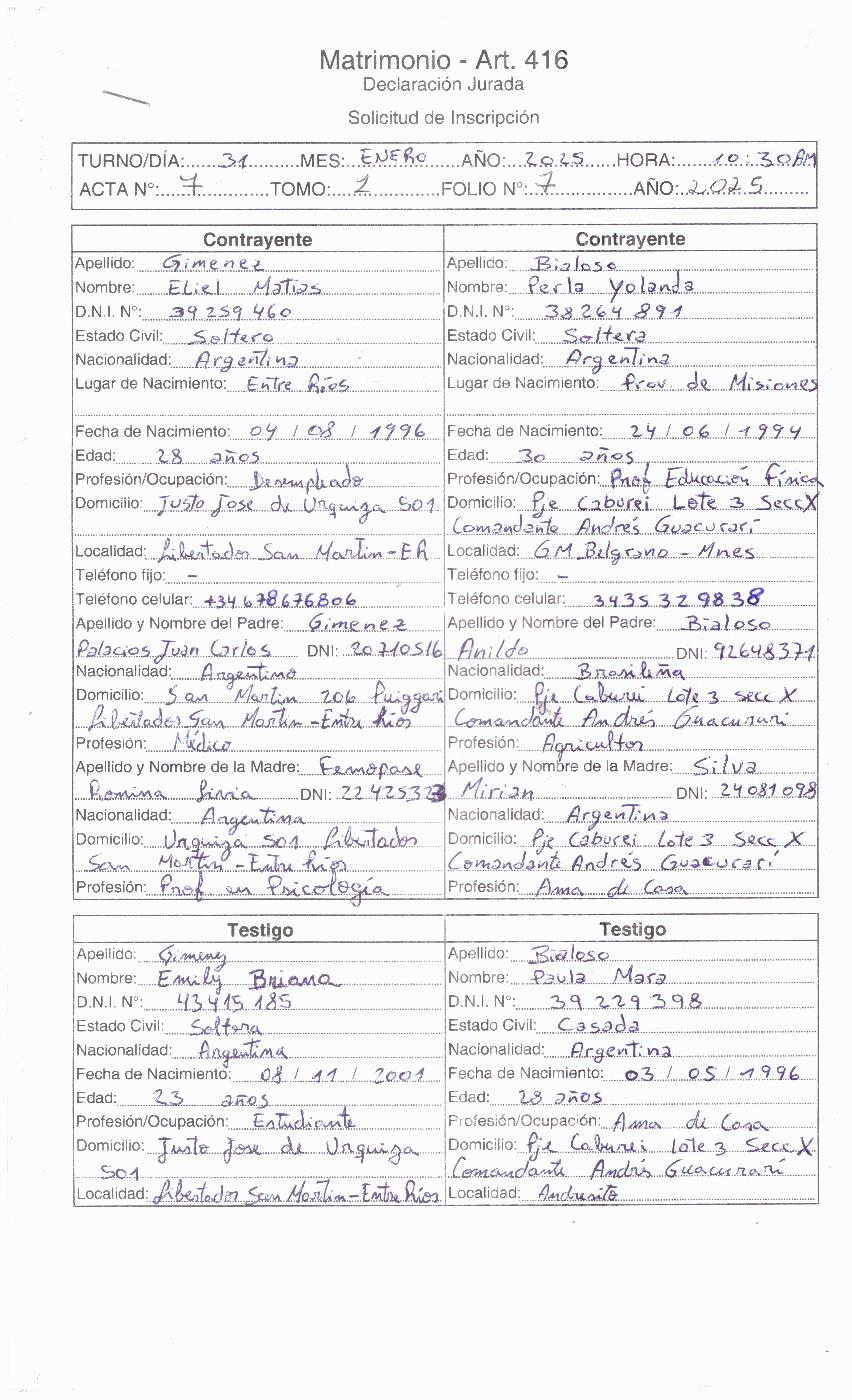 Matrimonio - Art. 416
Declaración Jurada
Solicitud de Inscripción
TURNO/DÍA: 31 MES: ENERO AÑO: 2025 HORA: 10:30AM
ACTA N°: 7 TOMO: 1 FOLIO N°: 7 AÑO: 2025
Contrayente
Apellido: Gimenez
Nombre: Eliel Matias
D.N.I. N°: 39 259 460
Estado Civil: Soltero
Nacionalidad: Argentina
Lugar de Nacimiento: Entre Ríos
Fecha de Nacimiento: 04 / 08 / 1996
Edad: 28 años
Profesión/Ocupación: Desempleado
Domicilio: Justo Jose de Urquiza 501
Localidad: Libertador San Martin-ER
Teléfono fijo: –
Teléfono celular: +34 678676806
Apellido y Nombre del Padre: Gimenez
Palacios Juan Carlos DNI: 20710516
Nacionalidad: Argentino
Domicilio: San Martin 206 Puiggari
Libertador San Martin-Entre Ríos
Profesión: Médico
Apellido y Nombre de la Madre:
Romina Livia DNI: 22425323
Nacionalidad: Argentina
Domicilio: Urquiza 501 Libertador
San Martin-Entre Ríos
Profesión: Prof en Psicología
Contrayente
Apellido: Bialoso
Nombre: Perla Yolanda
D.N.I. N°: 38 264 891
Estado Civil: Soltera
Nacionalidad: Argentina
Lugar de Nacimiento: Prov de Misiones
Fecha de Nacimiento: 24 / 06 / 1994
Edad: 30 años
Profesión/Ocupación: Prof Educación Física
Domicilio: Pje Caburei Lote 3 Secc X
Comandante Andrés Guacurarí
Localidad: GM Belgrano - Mnes
Teléfono fijo: –
Teléfono celular: 3435 329838
Apellido y Nombre del Padre: Bialoso
Anildo DNI: 92648371
Nacionalidad: Brasileña
Domicilio: Pje Caburei Lote 3 secc X
Comandante Andrés Guacurari
Profesión: Agricultor
Apellido y Nombre de la Madre: Silva
Mirian DNI: 24081098
Nacionalidad: Argentina
Domicilio: Pje Caburei Lote 3 Secc X
Comandante Andrés Guacurarí
Profesión: Ama de Casa
Testigo
Apellido: Gimenez
Nombre: Emily Briana
D.N.I. N°: 43415185
Estado Civil: Soltera
Nacionalidad: Argentina
Fecha de Nacimiento: 08 / 11 / 2001
Edad: 23 años
Profesión/Ocupación: Estudiante
Domicilio: Justo Jose de Urquiza
501
Localidad: Libertador San Martin-Entre Ríos
Testigo
Apellido: Bialoso
Nombre: Paula Mara
D.N.I. N°: 39 229 398
Estado Civil: Casada
Nacionalidad: Argentina
Fecha de Nacimiento: 03 / 05 / 1996
Edad: 28 años
Profesión/Ocupación: Ama de Casa
Domicilio: Pje Caburei lote 3 Secc X
Comandante Andrés Guacurarí
Localidad: Andresito